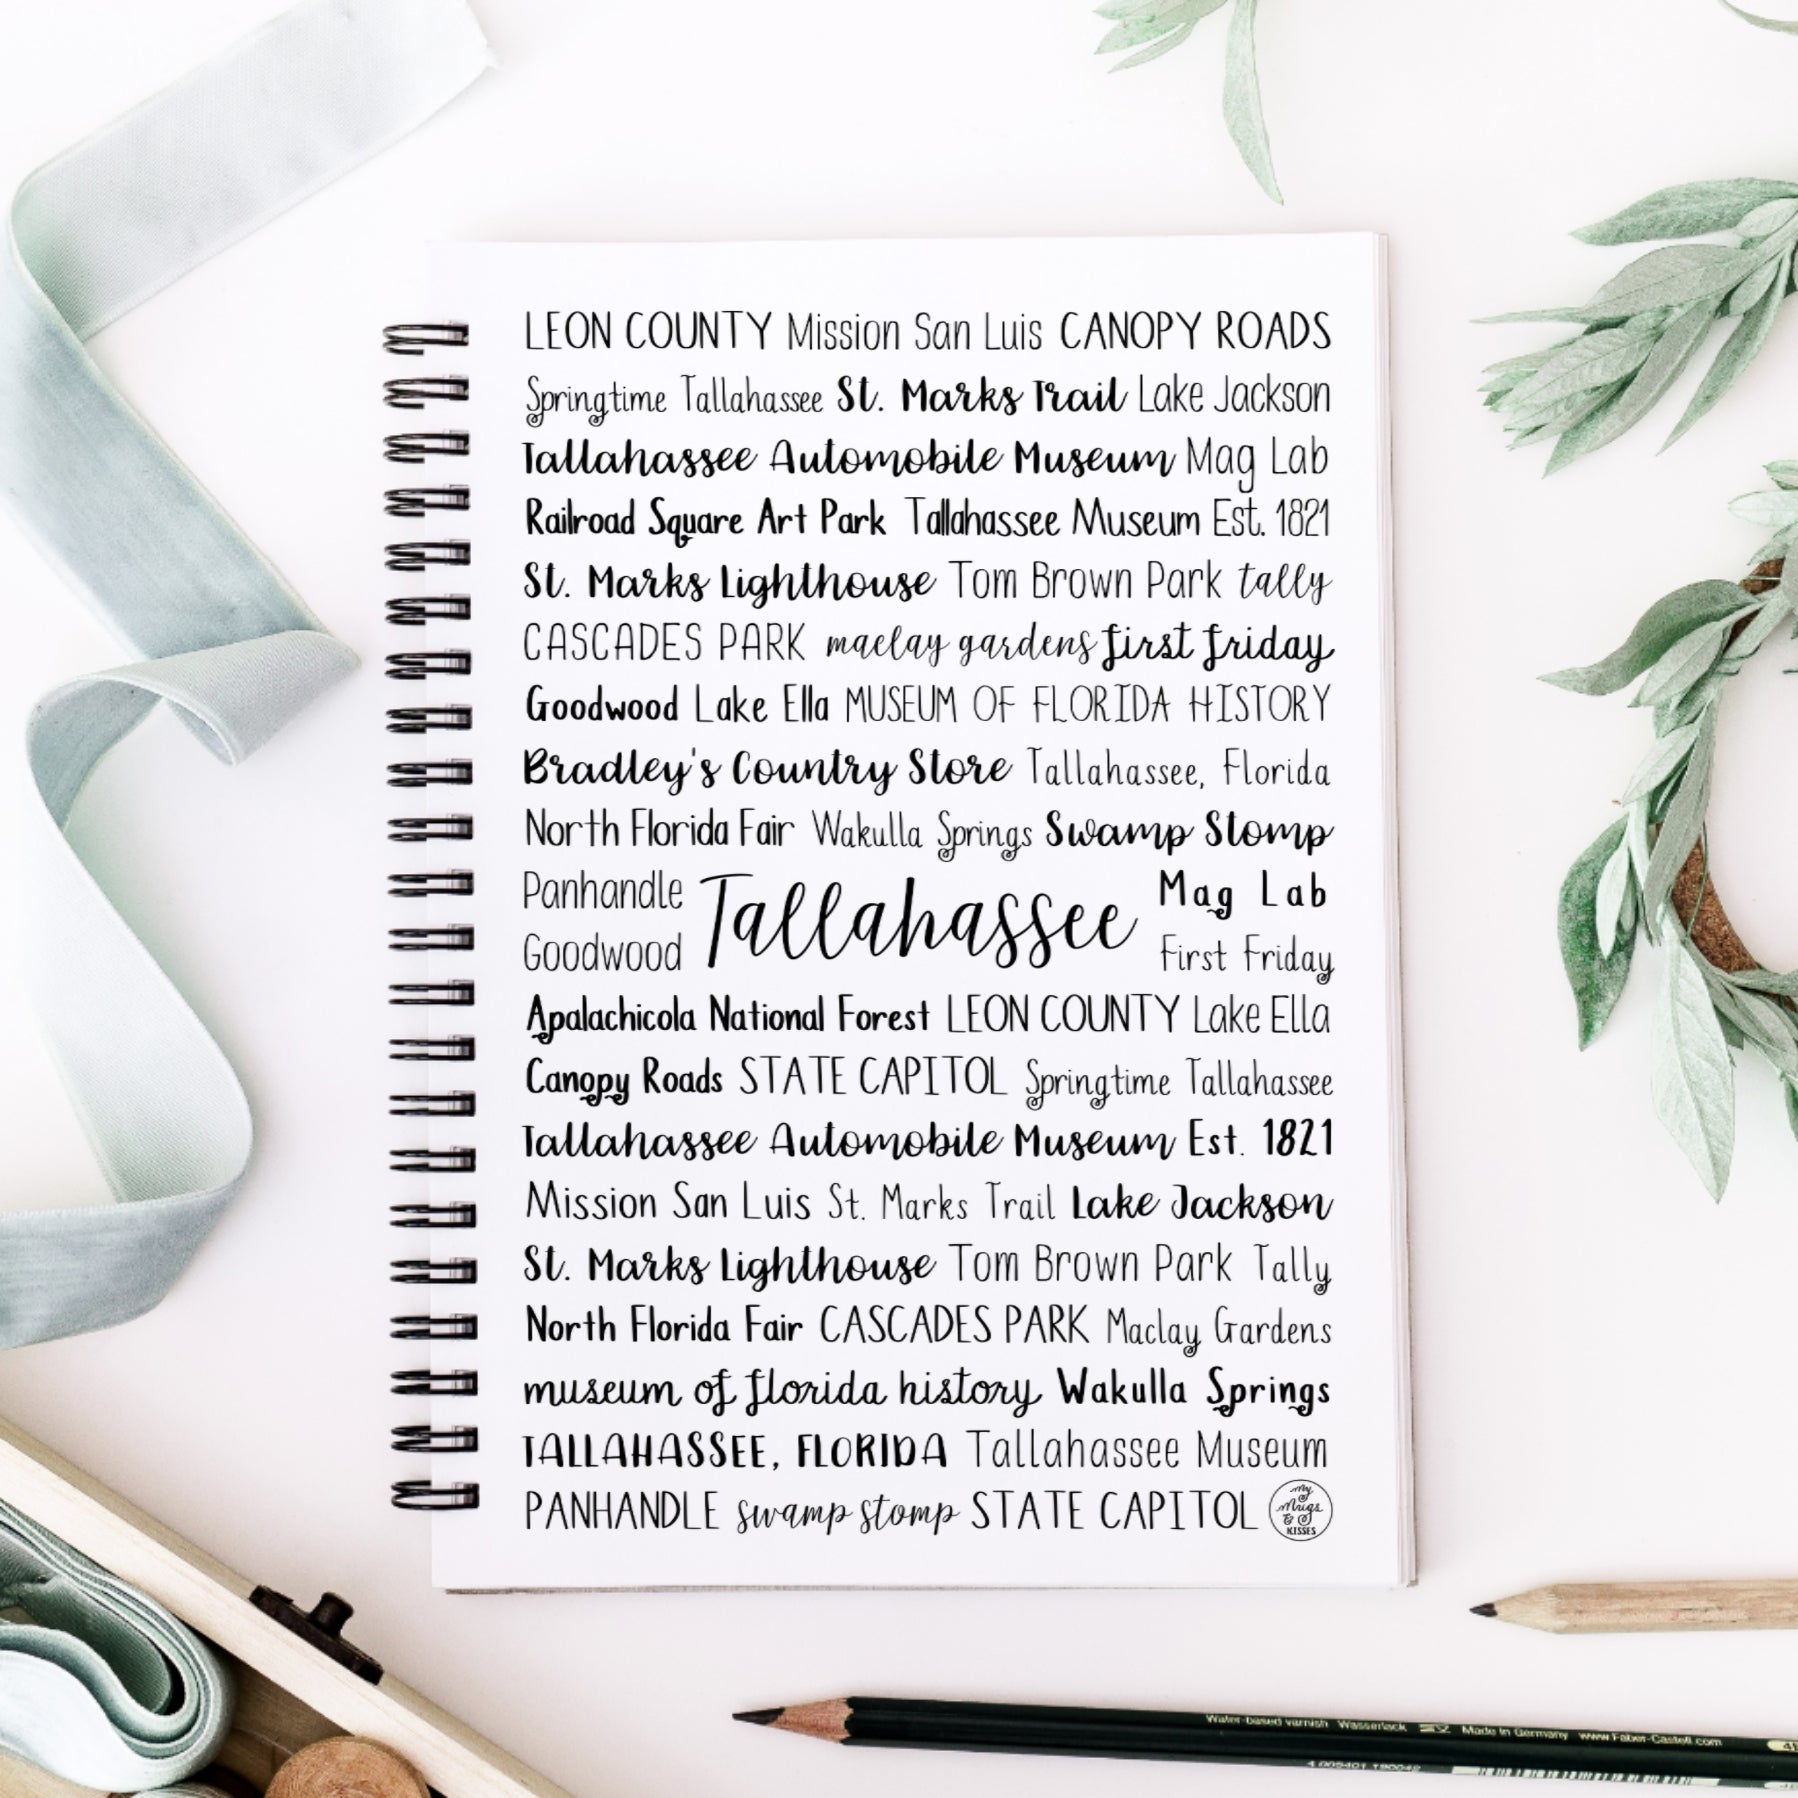 LEON COUNTY Mission San Luis CANOPY ROADS
Springtime Tallahassee St. Marks Trail Lake Jackson
Tallahassee Automobile Museum Mag Lab
Railroad Square Art Park Tallahassee Museum Est. 1821
St. Marks Lighthouse Tom Brown Park tally
CASCADES PARK maclay gardens first friday
Goodwood Lake Ella MUSEUM OF FLORIDA HISTORY
Bradley's Country Store Tallahassee, Florida
North Florida Fair Wakulla Springs Swamp Stomp
Panhandle
Goodwood
Tallahassee
Mag Lab
First Friday
Apalachicola National Forest LEON COUNTY Lake Ella
Canopy Roads STATE CAPITOL Springtime Tallahassee
Tallahassee Automobile Museum Est. 1821
Mission San Luis St. Marks Trail Lake Jackson
St. Marks Lighthouse Tom Brown Park Tally
North Florida Fair CASCADES PARK Maclay Gardens
museum of florida history Wakulla Springs
TALLAHASSEE, FLORIDA Tallahassee Museum
PANHANDLE swamp stomp STATE CAPITOL
My
Mugs
&
KISSES
Water-based varnish Wasserlack Made in Germany www.Faber-Castell.com
4 005401 190042